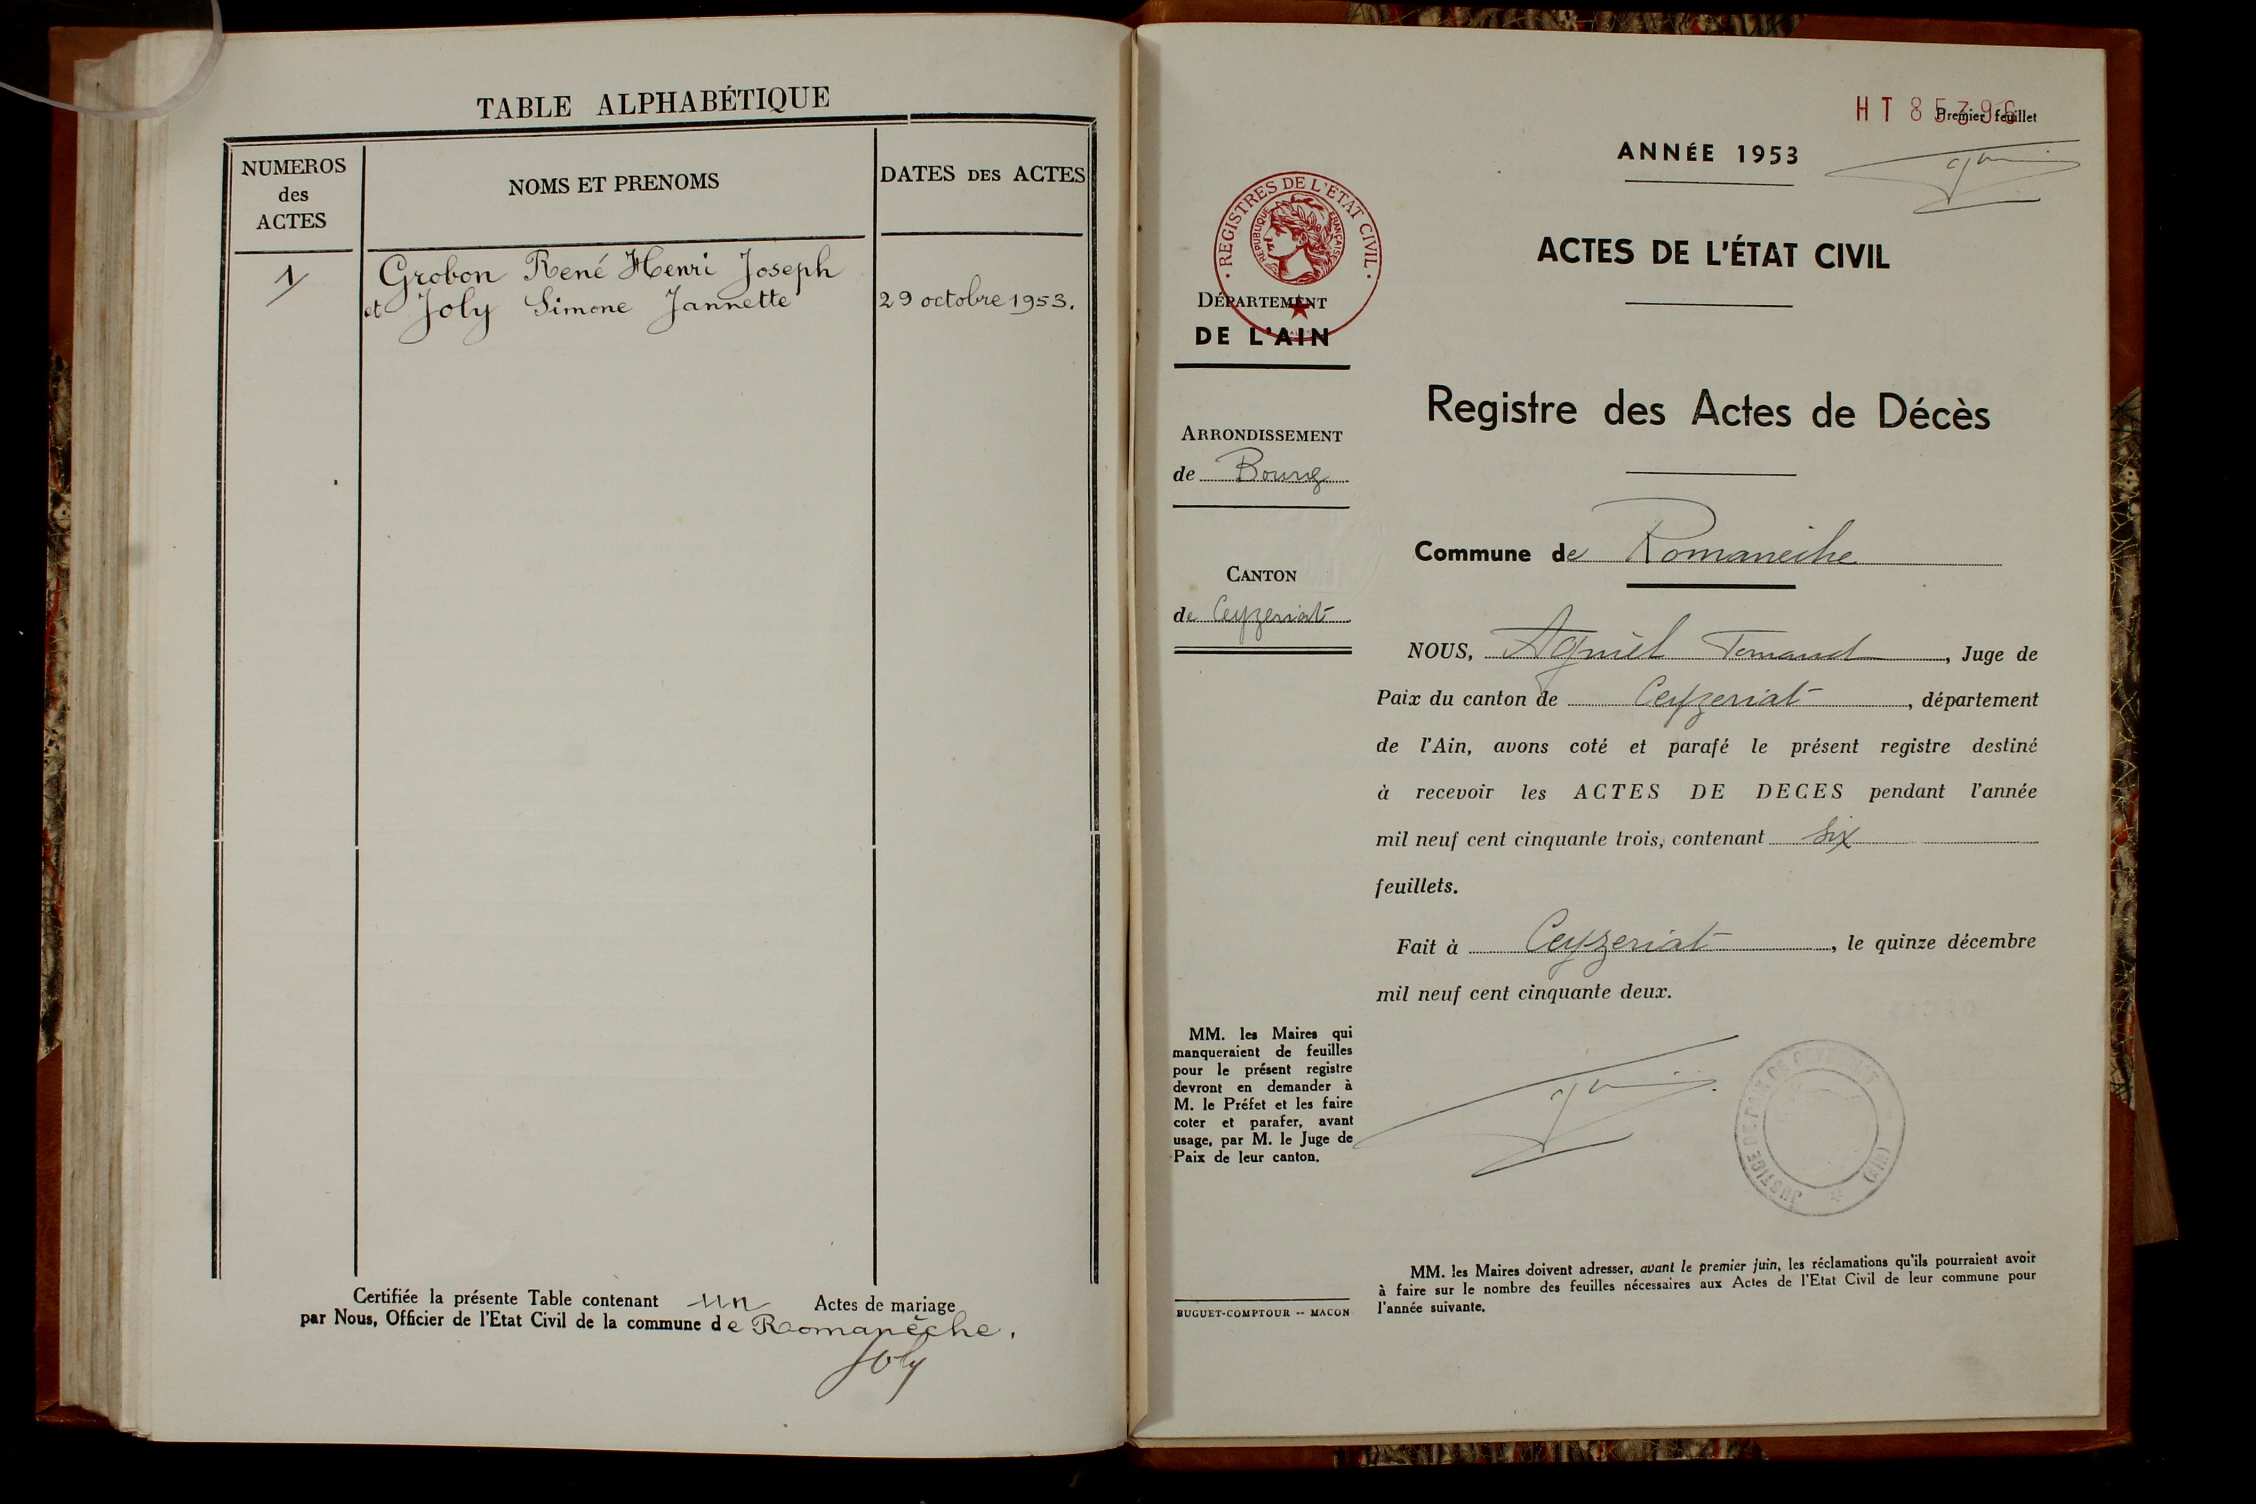 TABLE ALPHABÉTIQUE
NUMEROS
des
ACTES
NOMS ET PRENOMS
DATES DES ACTES
1
Grobon René Henri Joseph
et Joly Simone Jannette
29 octobre 1953.
Certifiée la présente Table contenant un Actes de mariage
par Nous, Officier de l'Etat Civil de la commune de Romanèche.
Joly
HT 85396
Premier feuillet
ANNÉE 1953
ACTES DE L'ÉTAT CIVIL
REGISTRES DE L'ÉTAT CIVIL
RÉPUBLIQUE FRANÇAISE
DÉPARTEMENT
DE L'AIN
Registre des Actes de Décès
ARRONDISSEMENT
de Bourg
Commune de Romaneche
CANTON
de Ceyzeriat
NOUS, Agniel Fernand, Juge de
Paix du canton de Ceyzeriat, département
de l'Ain, avons coté et parafé le présent registre destiné
à recevoir les ACTES DE DECES pendant l'année
mil neuf cent cinquante trois, contenant six
feuillets.
Fait à Ceyzeriat, le quinze décembre
mil neuf cent cinquante deux.
MM. les Maires qui
manqueraient de feuilles
pour le présent registre
devront en demander à
M. le Préfet et les faire
coter et parafer, avant
usage, par M. le Juge de
Paix de leur canton.
JUSTICE DE PAIX DE CEYZERIAT (AIN)
MM. les Maires doivent adresser, avant le premier juin, les réclamations qu'ils pourraient avoir
à faire sur le nombre des feuilles nécessaires aux Actes de l'Etat Civil de leur commune pour
l'année suivante.
BUGUET-COMPTOUR -- MACON